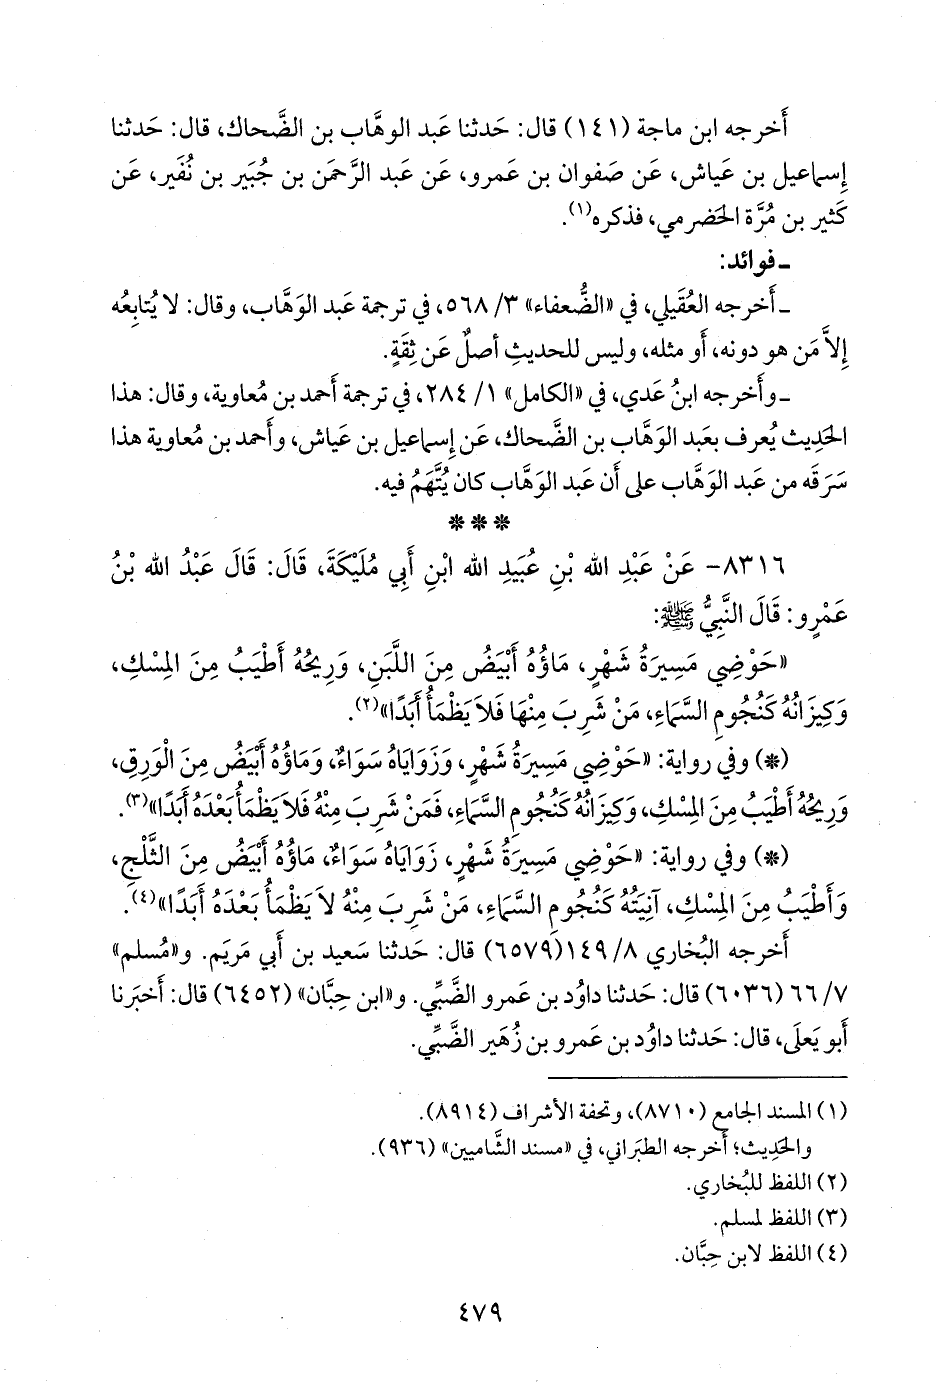 أَخرجه ابن ماجة (١٤١) قال: حَدثنا عَبد الوهَّاب بن الضَّحاك، قال: حَدثنا
إِسماعيل بن عَياش، عَن صَفوان بن عَمرو، عَن عَبد الرَّحمَن بن جُبَير بن نُفَير، عَن
كَثير بن مُرَّة الحَضرمي، فذكره(١).
ـ فوائد:
ـ أَخرجه العُقَيلي، في «الضُّعفاء» ٣/ ٥٦٨، في ترجمة عَبد الوَهَّاب، وقال: لا يُتابِعُه
إِلاَّ مَن هو دونه، أَو مثله، وليس للحديثِ أَصلٌ عَن ثِقَةٍ.
ـ وأَخرجه ابنُ عَدي، في «الكامل» ١/ ٢٨٤، في ترجمة أَحمد بن مُعاوية، وقال: هذا
الحَدِيث يُعرف بعَبد الوَهَّاب بن الضَّحاك، عَن إِسماعيل بن عَياش، وأَحمد بن مُعاوية هذا
سَرَقَه من عَبد الوَهَّاب على أَن عَبد الوَهَّاب كان يُتَّهَمُ فيه.
* * *
٨٣١٦- عَنْ عَبْدِ الله بْنِ عُبَيدِ الله ابْنِ أَبِي مُلَيْكَةَ، قَالَ: قَالَ عَبْدُ الله بْنُ
عَمْرٍو: قَالَ النَّبِيُّ ﷺ:
«حَوْضِي مَسِيرَةُ شَهْرٍ، مَاؤُهُ أَبْيَضُ مِنَ اللَّبَنِ، وَرِيحُهُ أَطْيَبُ مِنَ المِسْكِ،
وَكِيزَانُهُ كَنُجُومِ السَّمَاءِ، مَنْ شَرِبَ مِنْهَا فَلاَ يَظْمَأُ أَبَدًا»(٢).
(*) وفي رواية: «حَوْضِي مَسِيرَةُ شَهْرٍ، وَزَوَايَاهُ سَوَاءٌ، وَمَاؤُهُ أَبْيَضُ مِنَ الْوَرِقِ،
وَرِيحُهُ أَطْيَبُ مِنَ المِسْكِ، وَكِيزَانُهُ كَنُجُومِ السَّمَاءِ، فَمَنْ شَرِبَ مِنْهُ فَلاَ يَظْمَأُ بَعْدَهُ أَبَدًا»(٣).
(*) وفي رواية: «حَوْضِي مَسِيرَةُ شَهْرٍ، زَوَايَاهُ سَوَاءٌ، مَاؤُهُ أَبْيَضُ مِنَ الثَّلْجِ،
وَأَطْيَبُ مِنَ المِسْكِ، آنِيَتُهُ كَنُجُومِ السَّمَاءِ، مَنْ شَرِبَ مِنْهُ لاَ يَظْمَأُ بَعْدَهُ أَبَدًا»(٤).
أَخرجه البُخاري ٨/ ١٤٩(٦٥٧٩) قال: حَدثنا سَعيد بن أَبي مَريَم. و«مُسلم»
٧/ ٦٦ (٦٠٣٦) قال: حَدثنا داوُد بن عَمرو الضَّبِّي. و«ابن حِبَّان» (٦٤٥٢) قال: أَخبَرنا
أَبو يَعلَى، قال: حَدثنا داوُد بن عَمرو بن زُهَير الضَّبِّي.
(١) المسند الجامع (٨٧١٠)، وتحفة الأشراف (٨٩١٤).
والحَدِيث؛ أَخرجه الطبَراني، في «مسند الشَّاميين» (٩٣٦).
(٢) اللفظ للبُخاري.
(٣) اللفظ لمسلم.
(٤) اللفظ لابن حِبَّان.
٤٧٩